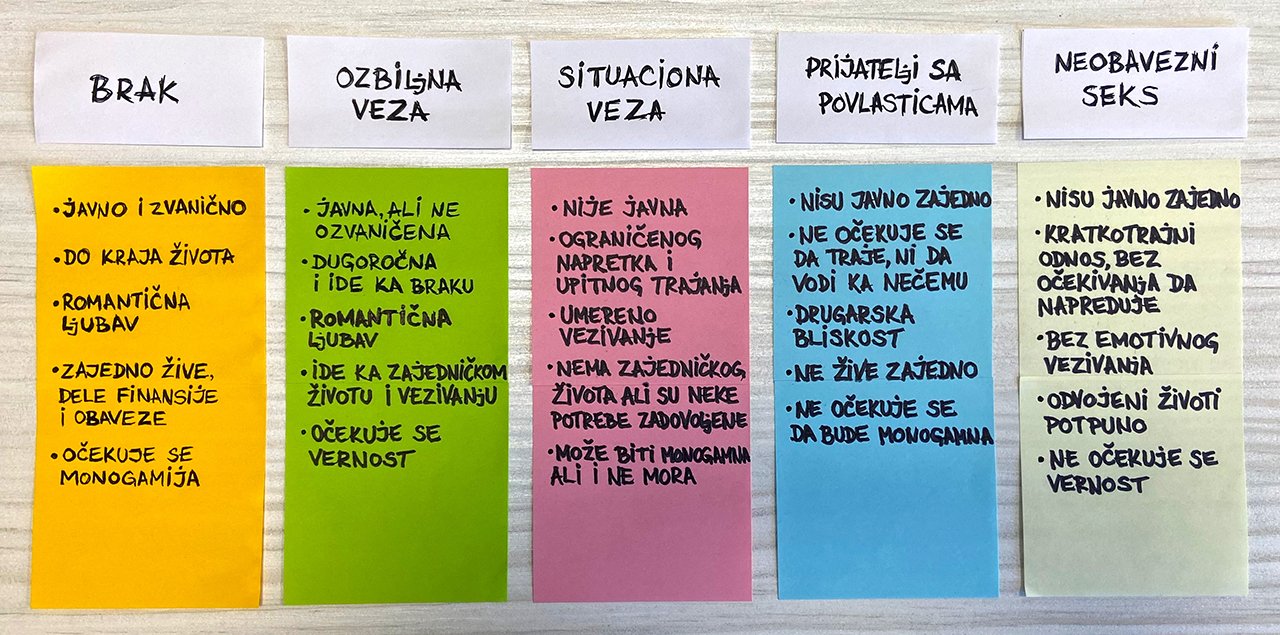 BRAK
OZBILJNA
VEZA
SITUACIONA
VEZA
PRIJATELJI SA
POVLASTICAMA
NEOBAVEZNI
SEKS
• JAVNO I ZVANIČNO
• DO KRAJA ŽIVOTA
• ROMANTIČNA
LJUBAV
• ZAJEDNO ŽIVE,
DELE FINANSIJE
I OBAVEZE
• OČEKUJE SE
MONOGAMIJA
• JAVNA, ALI NE
OZVANIČENA
• DUGOROČNA
I IDE KA BRAKU
• ROMANTIČNA
LJUBAV
• IDE KA ZAJEDNIČKOM
ŽIVOTU I VEZIVANJU
• OČEKUJE SE
VERNOST
• NIJE JAVNA
• OGRANIČENOG
NAPRETKA I
UPITNOG TRAJANJA
• UMERENO
VEZIVANJE
• NEMA ZAJEDNIČKOG,
ŽIVOTA ALI SU NEKE
POTREBE ZADOVOLJENE
• MOŽE BITI MONOGAMNA
ALI I NE MORA
• NISU JAVNO ZAJEDNO
• NE OČEKUJE SE
DA TRAJE, NI DA
VODI KA NEČEMU
• DRUGARSKA
BLISKOST
• NE ŽIVE ZAJEDNO
• NE OČEKUJE SE
DA BUDE MONOGAMNA
• NISU JAVNO ZAJEDNO
• KRATKOTRAJNI
ODNOS, BEZ
OČEKIVANJA DA
NAPREDUJE
• BEZ EMOTIVNOG
VEZIVANJA
• ODVOJENI ŽIVOTI
POTPUNO
• NE OČEKUJE SE
VERNOST